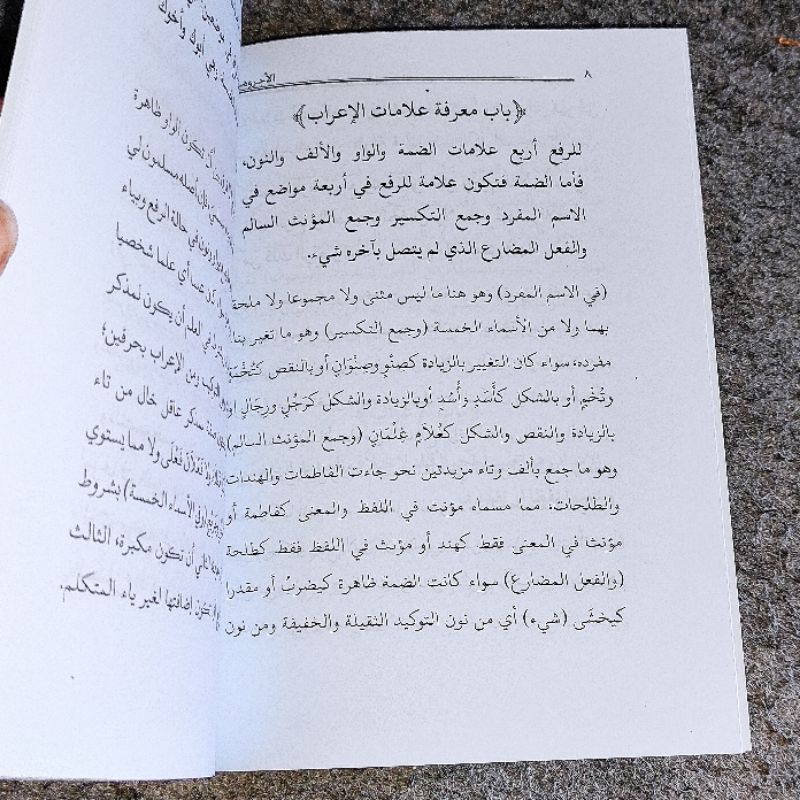 ٨
﴿باب معرفة علامات الإعراب﴾
للرفع أربع علامات الضمة والواو والألف والنون،
فأما الضمة فتكون علامة للرفع في أربعة مواضع في
الاسم المفرد وجمع التكسير وجمع المؤنث السالم
والفعل المضارع الذي لم يتصل بآخره شيء.
(في الاسم المفرد) وهو هنا ما ليس مثنى ولا مجموعا ولا ملحقا
بهما ولا من الأسماء الخمسة (وجمع التكسير) وهو ما تغير
مفرده، سواء كان التغيير بالزيادة كَصِنْوٍ وصِنْوَانٍ أو بالنقص كَتُخْمَةٍ
وتُخَمٍ أو بالشكل كَأَسَدٍ وأُسْدٍ أو بالزيادة والشكل كَرَجُلٍ ورِجَالٍ
بالزيادة والنقص والشكل كَغُلَامٍ غِلْمَانٍ (وجمع المؤنث السالم)
وهو ما جمع بألف وتاء مزيدتين نحو جاءت الفاطمات والهندات
والطلحات، مما مسماه مؤنث في اللفظ والمعنى كفاطمة أو
مؤنث في المعنى فقط كهند أو مؤنث في اللفظ فقط كطلحة
(والفعل المضارع) سواء كانت الضمة ظاهرة كيضربُ أو مقدرا
كيخشَى (شيء) أي من نون التوكيد الثقيلة والخفيفة ومن نون
أبوك وأخوك
تكون الواو ظاهرة
أصله مسلمون لي
في حالة الرفع وبياء
أي علما شخصيا
في العلم أن يكون لمذكر
التركيب ومن الإعراب بحرفين؛
لمذكر عاقل خال من تاء
فَعْلَى ولا مما يستوي
(وفي الأسماء الخمسة) بشروط
أن تكون مكبرة، الثالث
تكون إضافتها لغير ياء المتكلم.